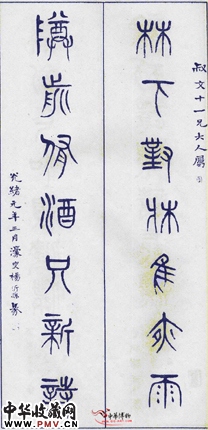 叔文十一兄大人屬
林下對牀聽夜雨
罇前侑酒只新詩
光緒元年三月濠叟楊沂孫篆
中华博物
中华收藏网
Www.SC001.Com.CN